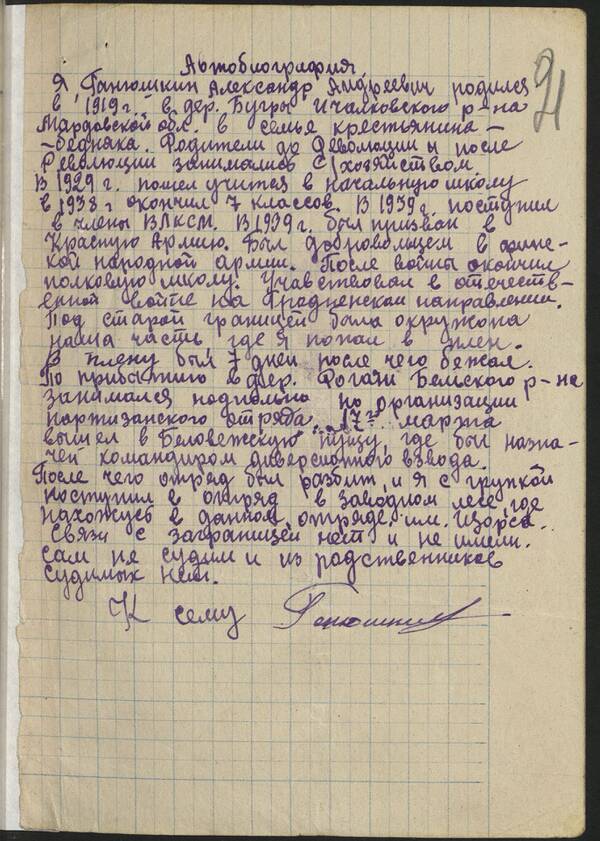 Автобиография
91
Я, Ганюшкин Александр Андреевич родился
в 1919 г. в дер. Бугры Ичалковского р-на
Мардовской обл. в семье крестьянина-
-бедняка. Родители до Революции и после
Революции занимались с/хозяйством.
В 1929 г. пошел учится в начальную школу
в 1938 г окончил 7 классов. В 1939 г. поступил
в члены ВЛКСМ. В 1939 г. был призван в
Красную Армию. Был добровольцем в фин-
кой народной армии. После войны окончил
полковую школу. Учавствовал в отечеств-
енной войне на Гродненском направлении.
Под старой границей была окружона
наша часть, где я попал в плен.
В плену был 7 дней после чего бежал.
По прибытию в дер. Рогачи Бельского р-на
занимался подпольно по организации
партизанского отряда. 17го марта
вышел в Беловежскую пущу, где был назна-
чен командиром диверсионного взвода.
После чего отряд был разбит, и я с групкой
поступил в отряд в заводном лесе, где
нахожусь в данном отряде им.
Связи с заграницей нет и не имели.
сам не судим и из родственников
судимых нет.
К сему Ганюшкин